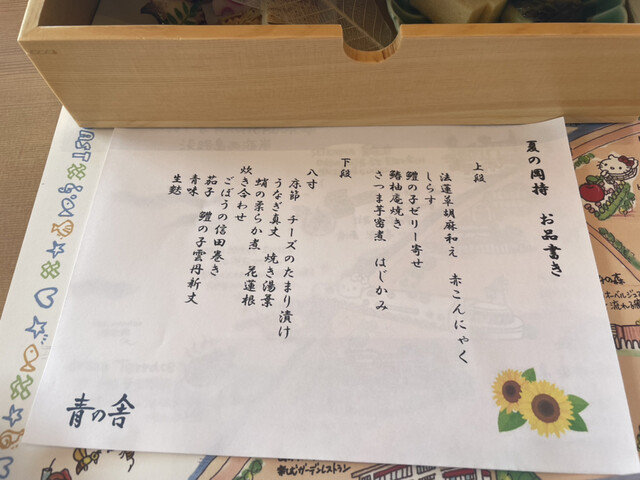 夏の岡持 お品書き
上段
法蓮草胡麻和え 赤こんにゃく
しらす
鱧の子ゼリー寄せ
鰆柚庵焼き
さつま芋蜜煮 はじかみ
下段
八寸
床節 チーズのたまり漬け
うなぎ真丈 焼き湯葉
蛸の柔らか煮 花蓮根
炊き合わせ
ごぼうの信田巻き
茄子 鱧の子雲丹新丈
青味
生麩
青の舎